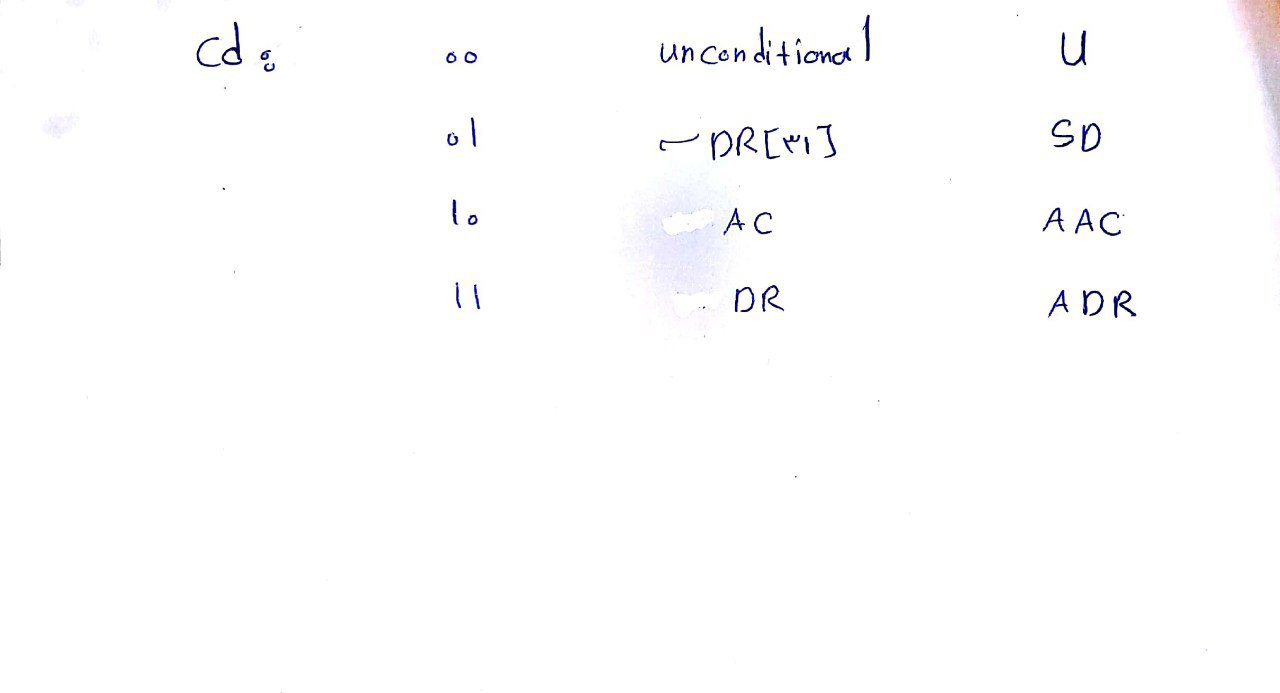 Cd: 00 unconditional U
01 ~ DR[۳۱] SD
10 AC AAC
11 DR ADR